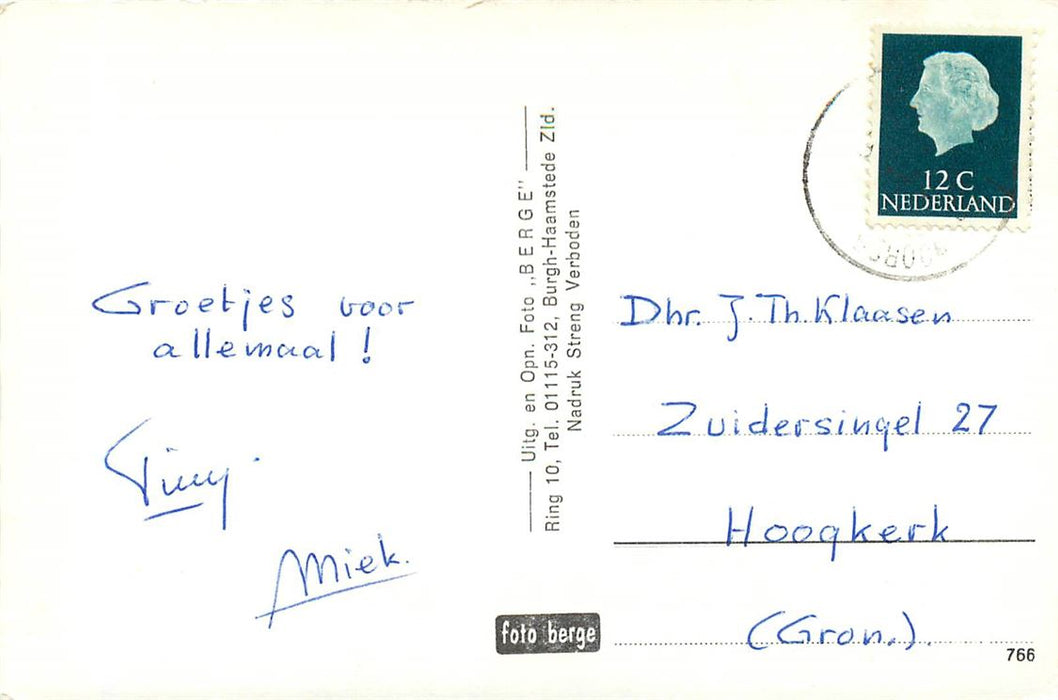 Groetjes voor
allemaal!
Miek.
Uitg. en Opn. Foto „BERGE”
Ring 10, Tel. 01115-312, Burgh-Haamstede Zld.
Nadruk Streng Verboden
foto berge
12 C
NEDERLAND
Dhr. J. Th. Klaasen
Zuidersingel 27
Hoogkerk
(Gron.).
766